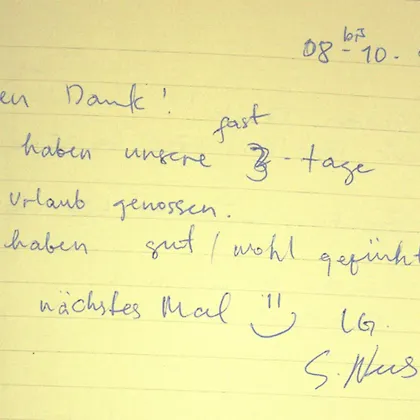 bis
08 - 10.
en Dank!
fast
haben unsere 3-tage
Urlaub genossen.
haben gut / wohl gefühlt
nächstes Mal LG.
S.